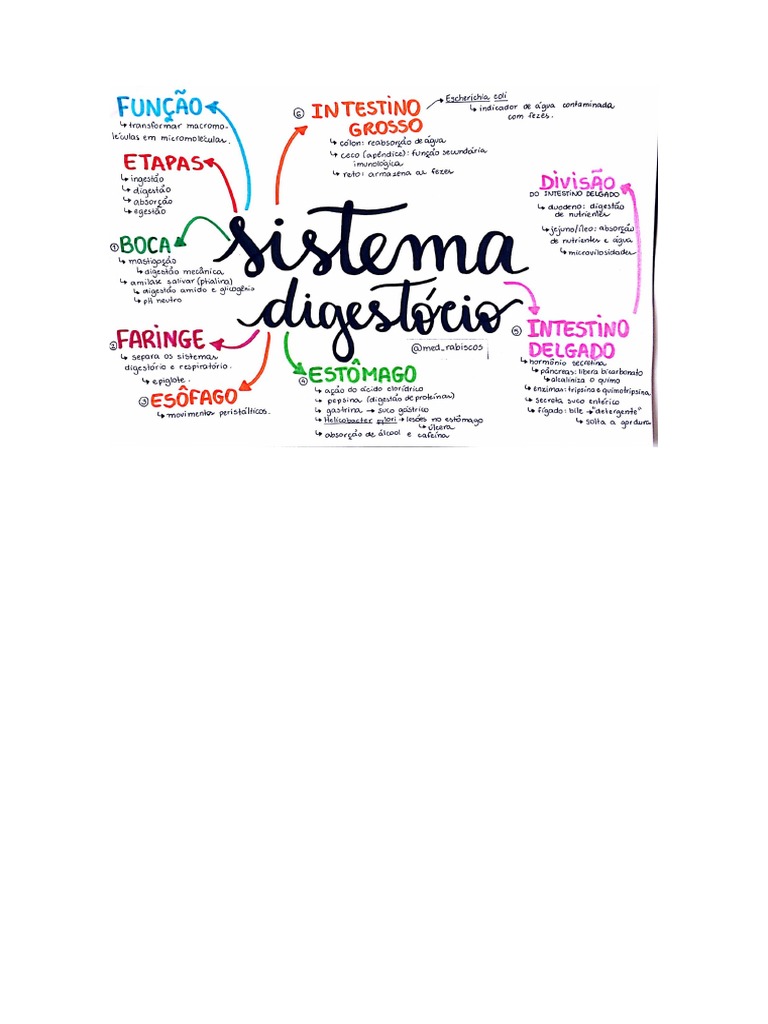 FUNÇÃO
↳ transformar macromo-
léculas em micromoléculas.
ETAPAS
↳ ingestão
↳ digestão
↳ absorção
↳ egestão
① BOCA
↳ mastigação
↳ digestão mecânica
↳ amilase salivar (ptialina)
↳ digestão amido e glicogênio
↳ pH neutro
② FARINGE
↳ separa os sistemas
digestório e respiratório.
↳ epiglote.
③ ESÔFAGO
↳ movimentos peristálticos.
sistema
digestócio
@med_rabiscos
④ ESTÔMAGO
↳ ação do ácido clorídrico
↳ pepsina (digestão de proteínas)
↳ gastrina → suco gástrico
↳ Helicobacter pylori → lesões no estômago
↳ úlcera
↳ absorção de álcool e cafeína
⑤ INTESTINO
DELGADO
↳ hormônio secretina
↳ pâncreas: libera bicarbonato
↳ alcaliniza o quimo
↳ enzimas: tripsina e quimotripsina
↳ secreta suco entérico
↳ fígado: bile → "detergente"
↳ solta a gordura
DIVISÃO
DO INTESTINO DELGADO
↳ duodeno: digestão
de nutrientes
↳ jejuno/íleo: absorção
de nutrientes e água
↳ microvilosidades
⑥ INTESTINO
GROSSO
↳ cólon: reabsorção de água
↳ ceco (apêndice): função secundária
imunológica
↳ reto: armazena as fezes
Escherichia coli
↳ indicador de água contaminada
com fezes.